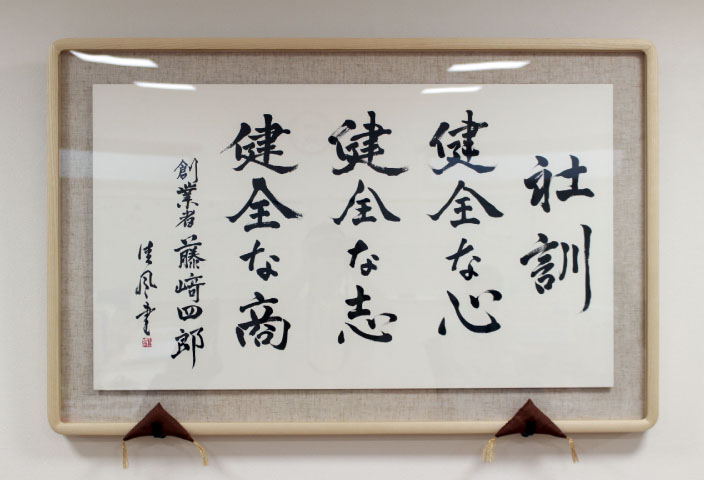 社訓
健全な心
健全な志
健全な商
創業者 藤﨑四郎
佳風書